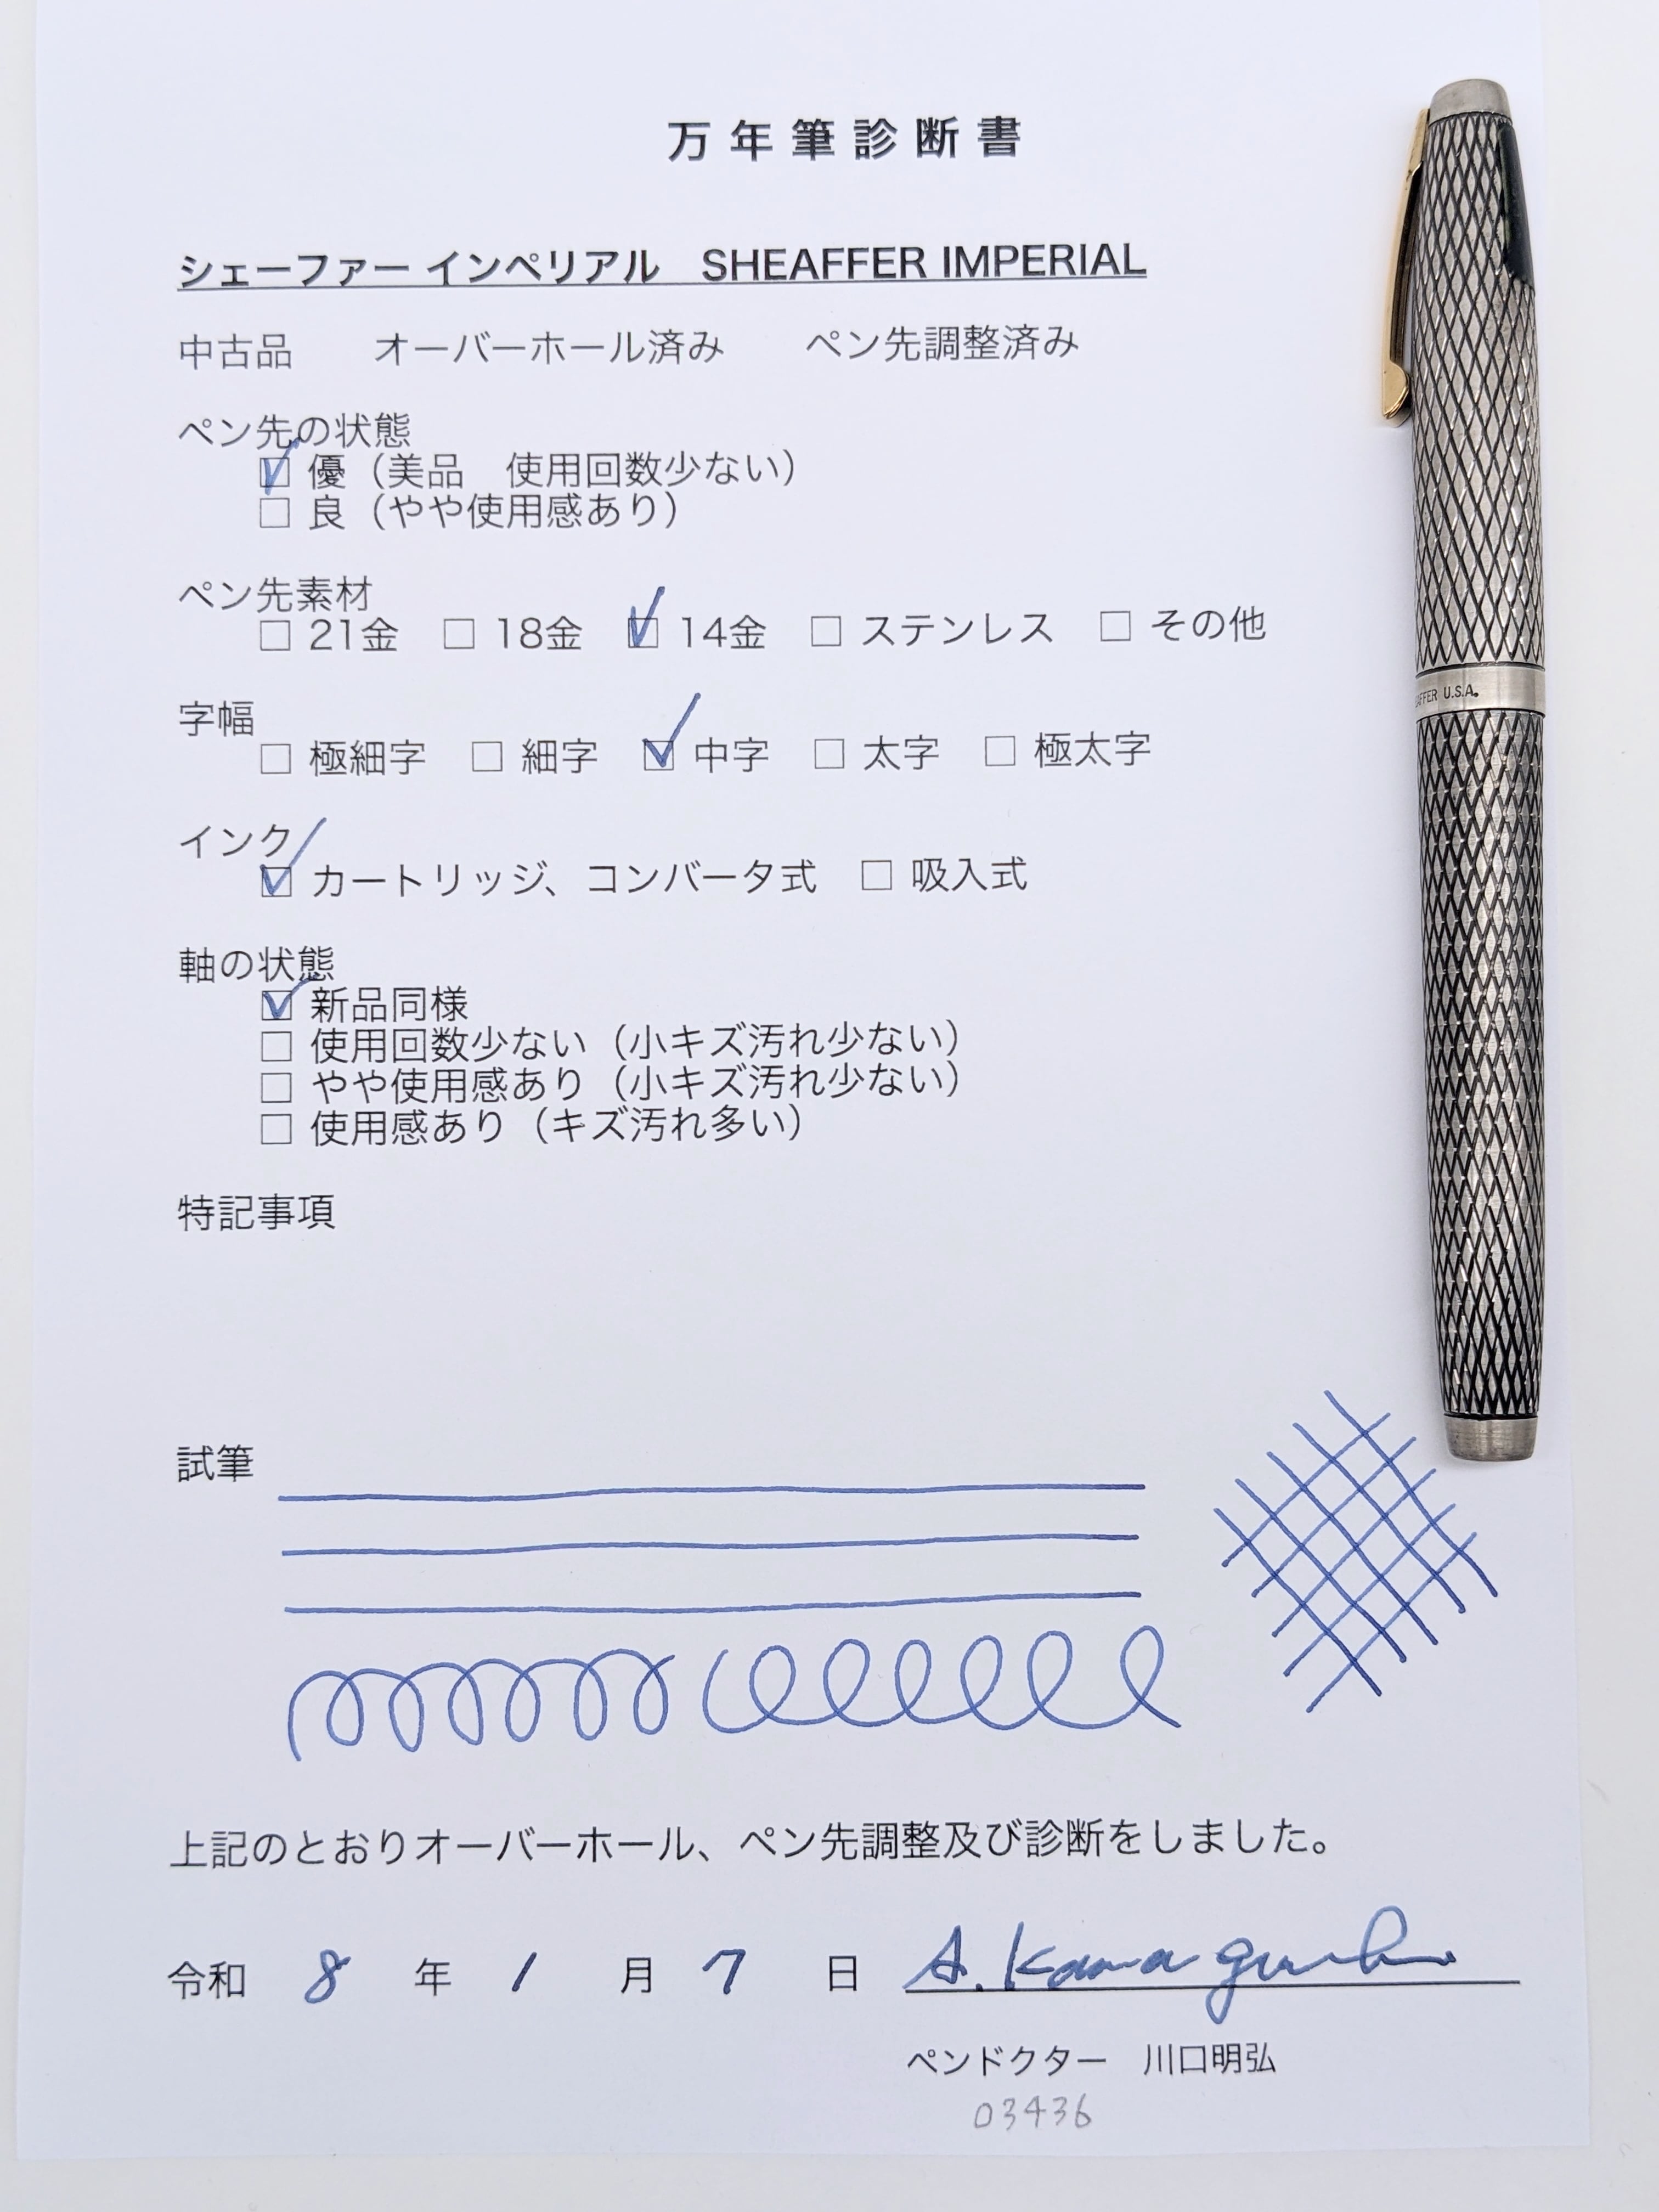 万年筆診断書
シェーファー インペリアル　SHEAFFER IMPERIAL
中古品　　オーバーホール済み　　ペン先調整済み
ペン先の状態
☑ 優（美品　使用回数少ない）
□ 良（やや使用感あり）
ペン先素材
□ 21金　□ 18金　☑ 14金　□ ステンレス　□ その他
字幅
□ 極細字　□ 細字　☑ 中字　□ 太字　□ 極太字
インク
☑ カートリッジ、コンバータ式　□ 吸入式
軸の状態
☑ 新品同様
□ 使用回数少ない（小キズ汚れ少ない）
□ やや使用感あり（小キズ汚れ少ない）
□ 使用感あり（キズ汚れ多い）
特記事項
試筆
上記のとおりオーバーホール、ペン先調整及び診断をしました。
令和 8 年 1 月 7 日 A. Kawaguchi
ペンドクター　川口明弘
03436
AFFER U.S.A.